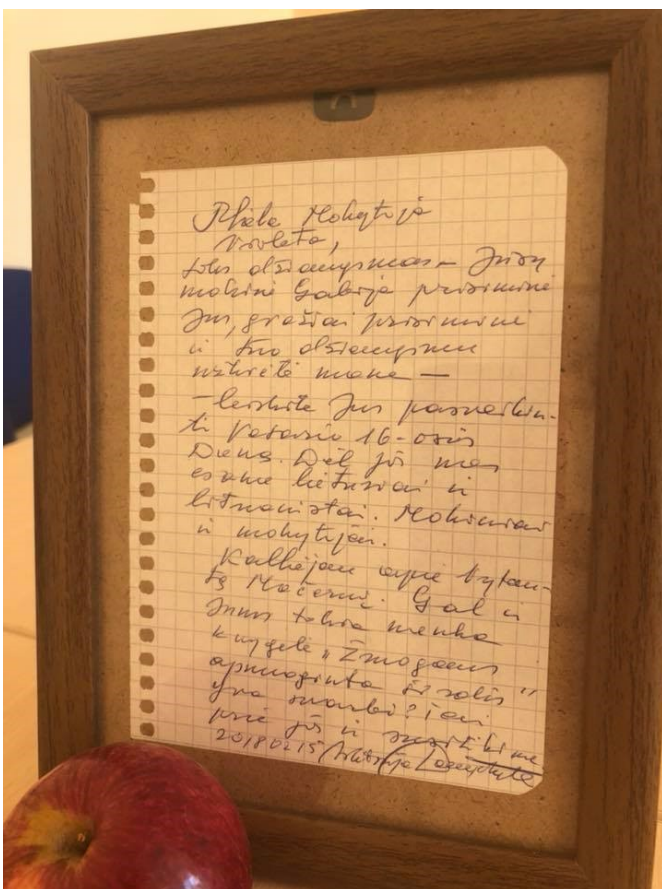 Miela Mokytoja
Violeta,
toks džiaugsmas – Jūsų
mokinė Gabija prisiminė
Jus, gražiai prisiminė
ir tuo džiaugsmu
užkrėtė mane –
– leiskite Jus pasveikin-
ti Vasario 16-osios
Diena. Dėl jos mes
esame lietuviai ir
lituanistai. Mokiniai
ir mokytojai.
Kalbėjau apie Vytau-
tą Mačernį. Gal ir
Jums tokia menka
knygelė „Žmogaus
apnuoginta širdis"
yra svarbi? Tai
prie jos ir susitikime
20180215 Viktorija Daujotytė